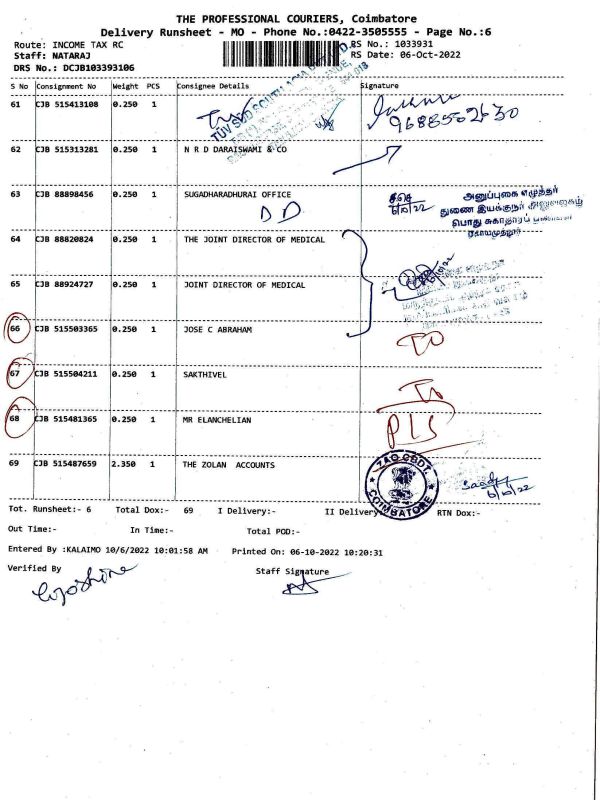 THE PROFESSIONAL COURIERS, Coimbatore
Delivery Runsheet - MO - Phone No.:0422-3505555 - Page No.:6
Route: INCOME TAX RC RS No.: 1033931
Staff: NATARAJ RS Date: 06-Oct-2022
DRS No.: DCJB103393106
S No Consignment No Weight PCS Consignee Details Signature
61 CJB 515413108 0.250 1
TUV SUD SOUTH ASIA
9688502630
62 CJB 515313281 0.250 1 N R D DARAISWAMI & CO
63 CJB 88898456 0.250 1 SUGADHARADHURAI OFFICE
DD
6/10/22
அனுப்புகை எழுத்தர்
துணை இயக்குநர்
பொது சுகாதாரம்
64 CJB 88820824 0.250 1 THE JOINT DIRECTOR OF MEDICAL
65 CJB 88924727 0.250 1 JOINT DIRECTOR OF MEDICAL
66 CJB 515503365 0.250 1 JOSE C ABRAHAM
67 CJB 515504211 0.250 1 SAKTHIVEL
68 CJB 515481365 0.250 1 MR ELANCHELIAN
PLS
69 CJB 515487659 2.350 1 THE ZOLAN ACCOUNTS
ZAO CBDT.
COIMBATORE
6/10/22
Tot. Runsheet:- 6 Total Dox:- 69 I Delivery:- II Delivery RTN Dox:-
Out Time:- In Time:- Total POD:-
Entered By :KALAIMO 10/6/2022 10:01:58 AM Printed On: 06-10-2022 10:20:31
Verified By Staff Signature